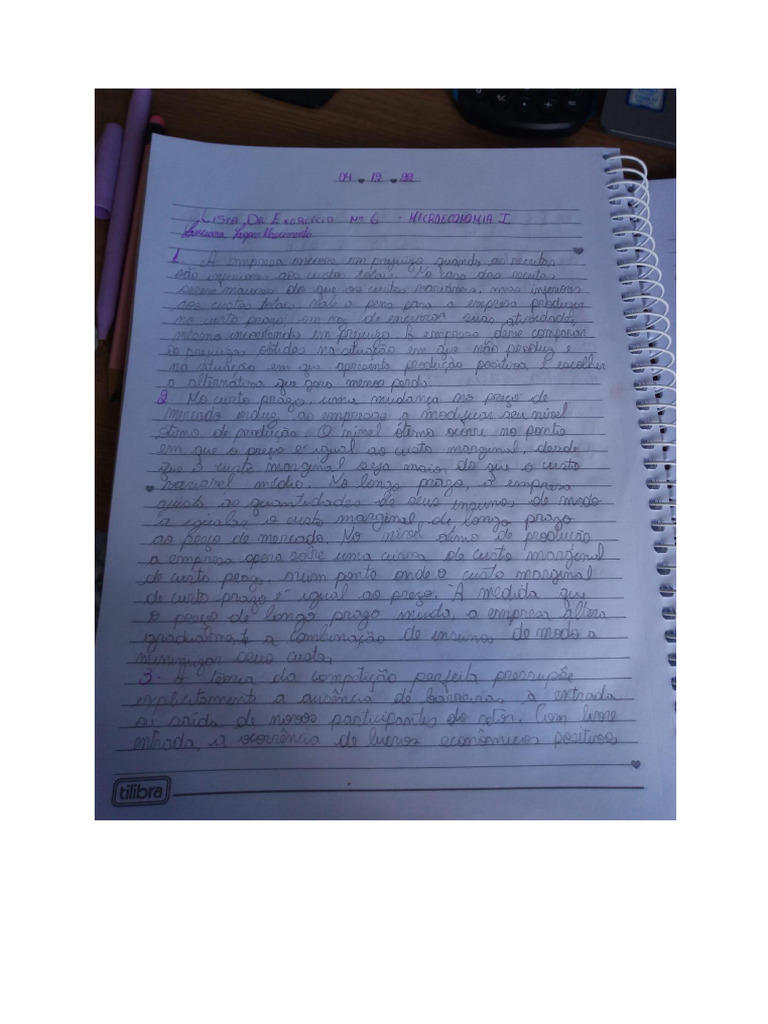 04 12 22
Lista De Exercício Nº 6 - MICROECONOMIA I
Nascimento
1. A empresa incorre em prejuízo quando as receitas
são inferiores aos custos totais. No caso das receitas
serem maiores do que os custos variáveis, mas inferiores
aos custos totais, vale a pena para a empresa produzir
no curto prazo em vez de encerrar suas atividades,
mesmo incorrendo em prejuízo. A empresa deve comparar
os prejuízos obtidos na situação em que não produz e
na situação em que apresenta produção positiva. E escolher
a alternativa que gera menor perda.
2. No curto prazo, uma mudança no preço de
mercado induz as empresas a modificar seu nível
ótimo de produção. O nível ótimo ocorre no ponto
em que o preço é igual ao custo marginal, desde
que o custo marginal seja maior do que o custo
variável médio. No longo prazo, a empresa
ajusta as quantidades de seus insumos de modo
a igualar o custo marginal de longo prazo
ao preço de mercado. No nível ótimo de produção
a empresa opera sobre uma curva de custo marginal
de curto prazo, num ponto onde o custo marginal
de curto prazo é igual ao preço. À medida que
o preço de longo prazo muda, a empresa altera
a combinação de insumos de modo a
minimizar seus custo.
3. A teoria da competição perfeita pressupõe
explicitamente a ausência de barreiras à entrada
ou saída de novos participantes do setor. Com livre
entrada, a ocorrência de lucros econômicos positivos
tilibra